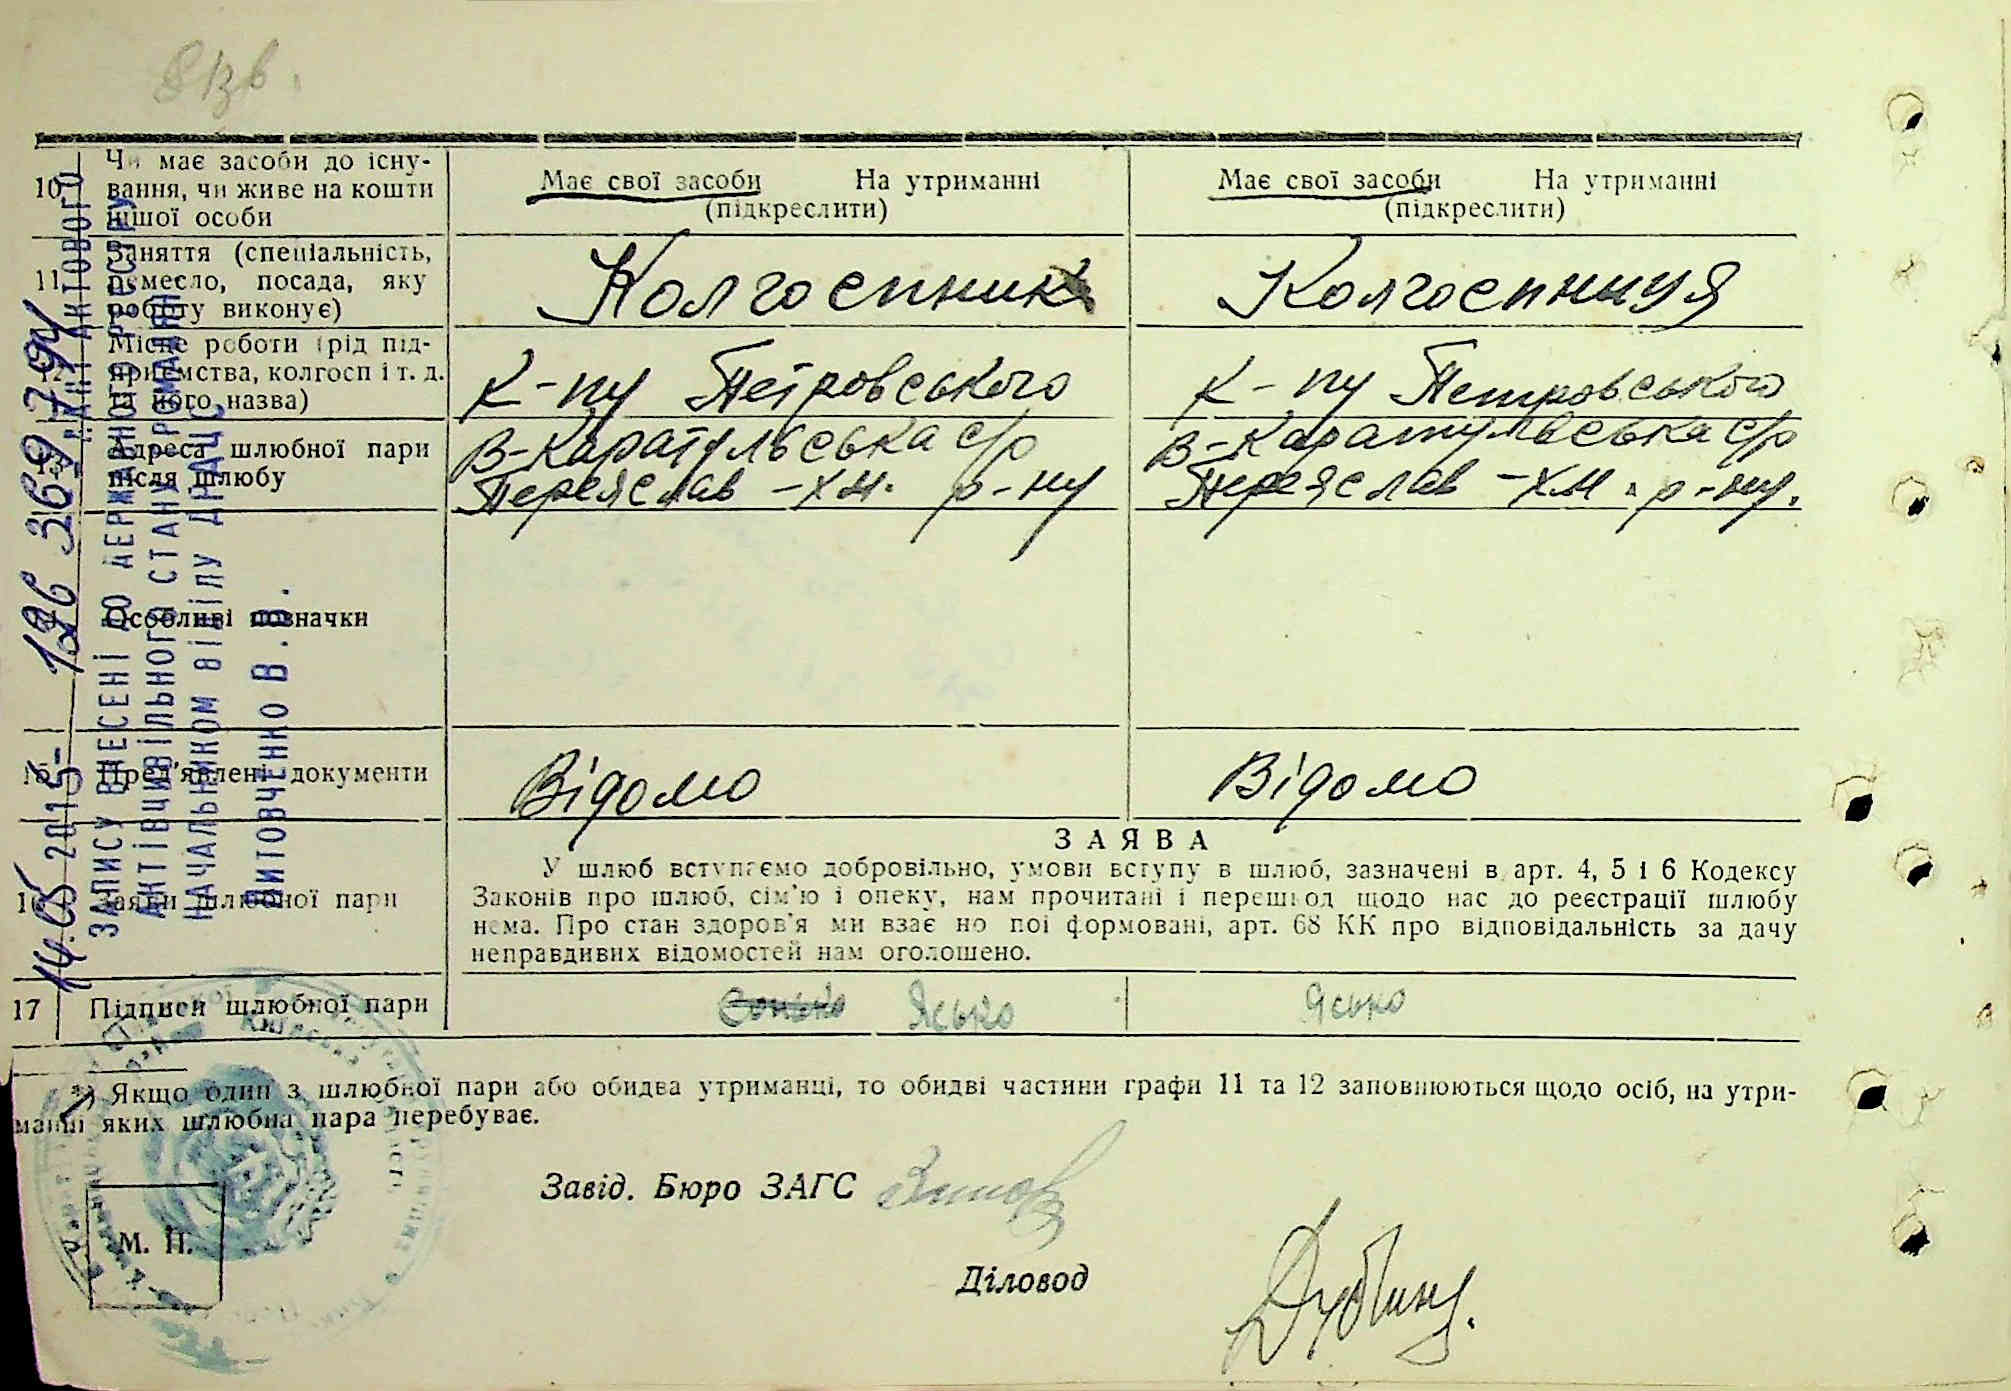 10 Чи має засоби до існу-
вання, чи живе на кошти
іншої особи
Має свої засоби На утриманні
(підкреслити)
Має свої засоби На утриманні
(підкреслити)
11 Заняття (спеціальність,
ремесло, посада, яку
роботу виконує)
Колгоспник
Колгоспниця
12 Місце роботи (рід під-
приємства, колгосп і т. д.
та його назва)
К-пу Петровського
К-пу Петровського
Адреса шлюбної пари
після шлюбу
В-Каратульська с/р
Переяслав-Хм. р-ну
В-Каратульська с/р
Переяслав-Хм. р-ну.
Особливі позначки
15 Пред'явлені документи
Відомо
Відомо
16 Заяви шлюбної пари
ЗАЯВА
У шлюб вступаємо добровільно, умови вступу в шлюб, зазначені в арт. 4, 5 і 6 Кодексу
Законів про шлюб, сім'ю і опеку, нам прочитані і перешкод щодо нас до реєстрації шлюбу
нема. Про стан здоров'я ми взаємно поінформовані, арт. 68 КК про відповідальність за дачу
неправдивих відомостей нам оголошено.
17 Підписи шлюбної пари
Ясько
Ясько
*) Якщо один з шлюбної пари або обидва утриманці, то обидві частини графи 11 та 12 заповнюються щодо осіб, на утри-
манні яких шлюбна пара перебуває.
Завід. Бюро ЗАГС
М. П.
Діловод
14.05 2015
ДАНІ АКТОВОГО
ЗАПИСУ ВНЕСЕНІ ДО ДЕРЖАВНОГО РЕЄСТРУ
АКТІВ ЦИВІЛЬНОГО СТАНУ ГРОМАДЯН
НАЧАЛЬНИКОМ ВІДДІЛУ ДРАЦС
ВИТОВЧЕНКО В.В.